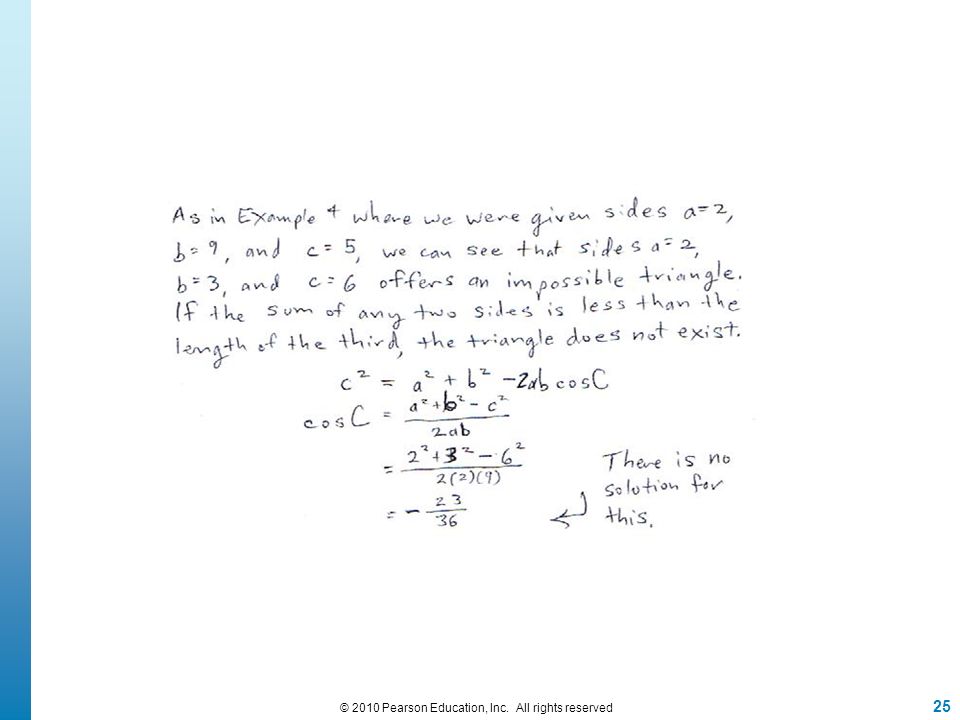 As in Example 4 where we were given sides a=2,
b=9, and c=5, we can see that sides a=2,
b=3, and c=6 offers an impossible triangle.
If the sum of any two sides is less than the
length of the third, the triangle does not exist.
c² = a² + b² -2ab cosC
cosC = (a²+b²-c²)/(2ab)
= (2²+3²-6²)/(2(2)(9))
= -23/36
There is no
solution for
this.
© 2010 Pearson Education, Inc. All rights reserved
25